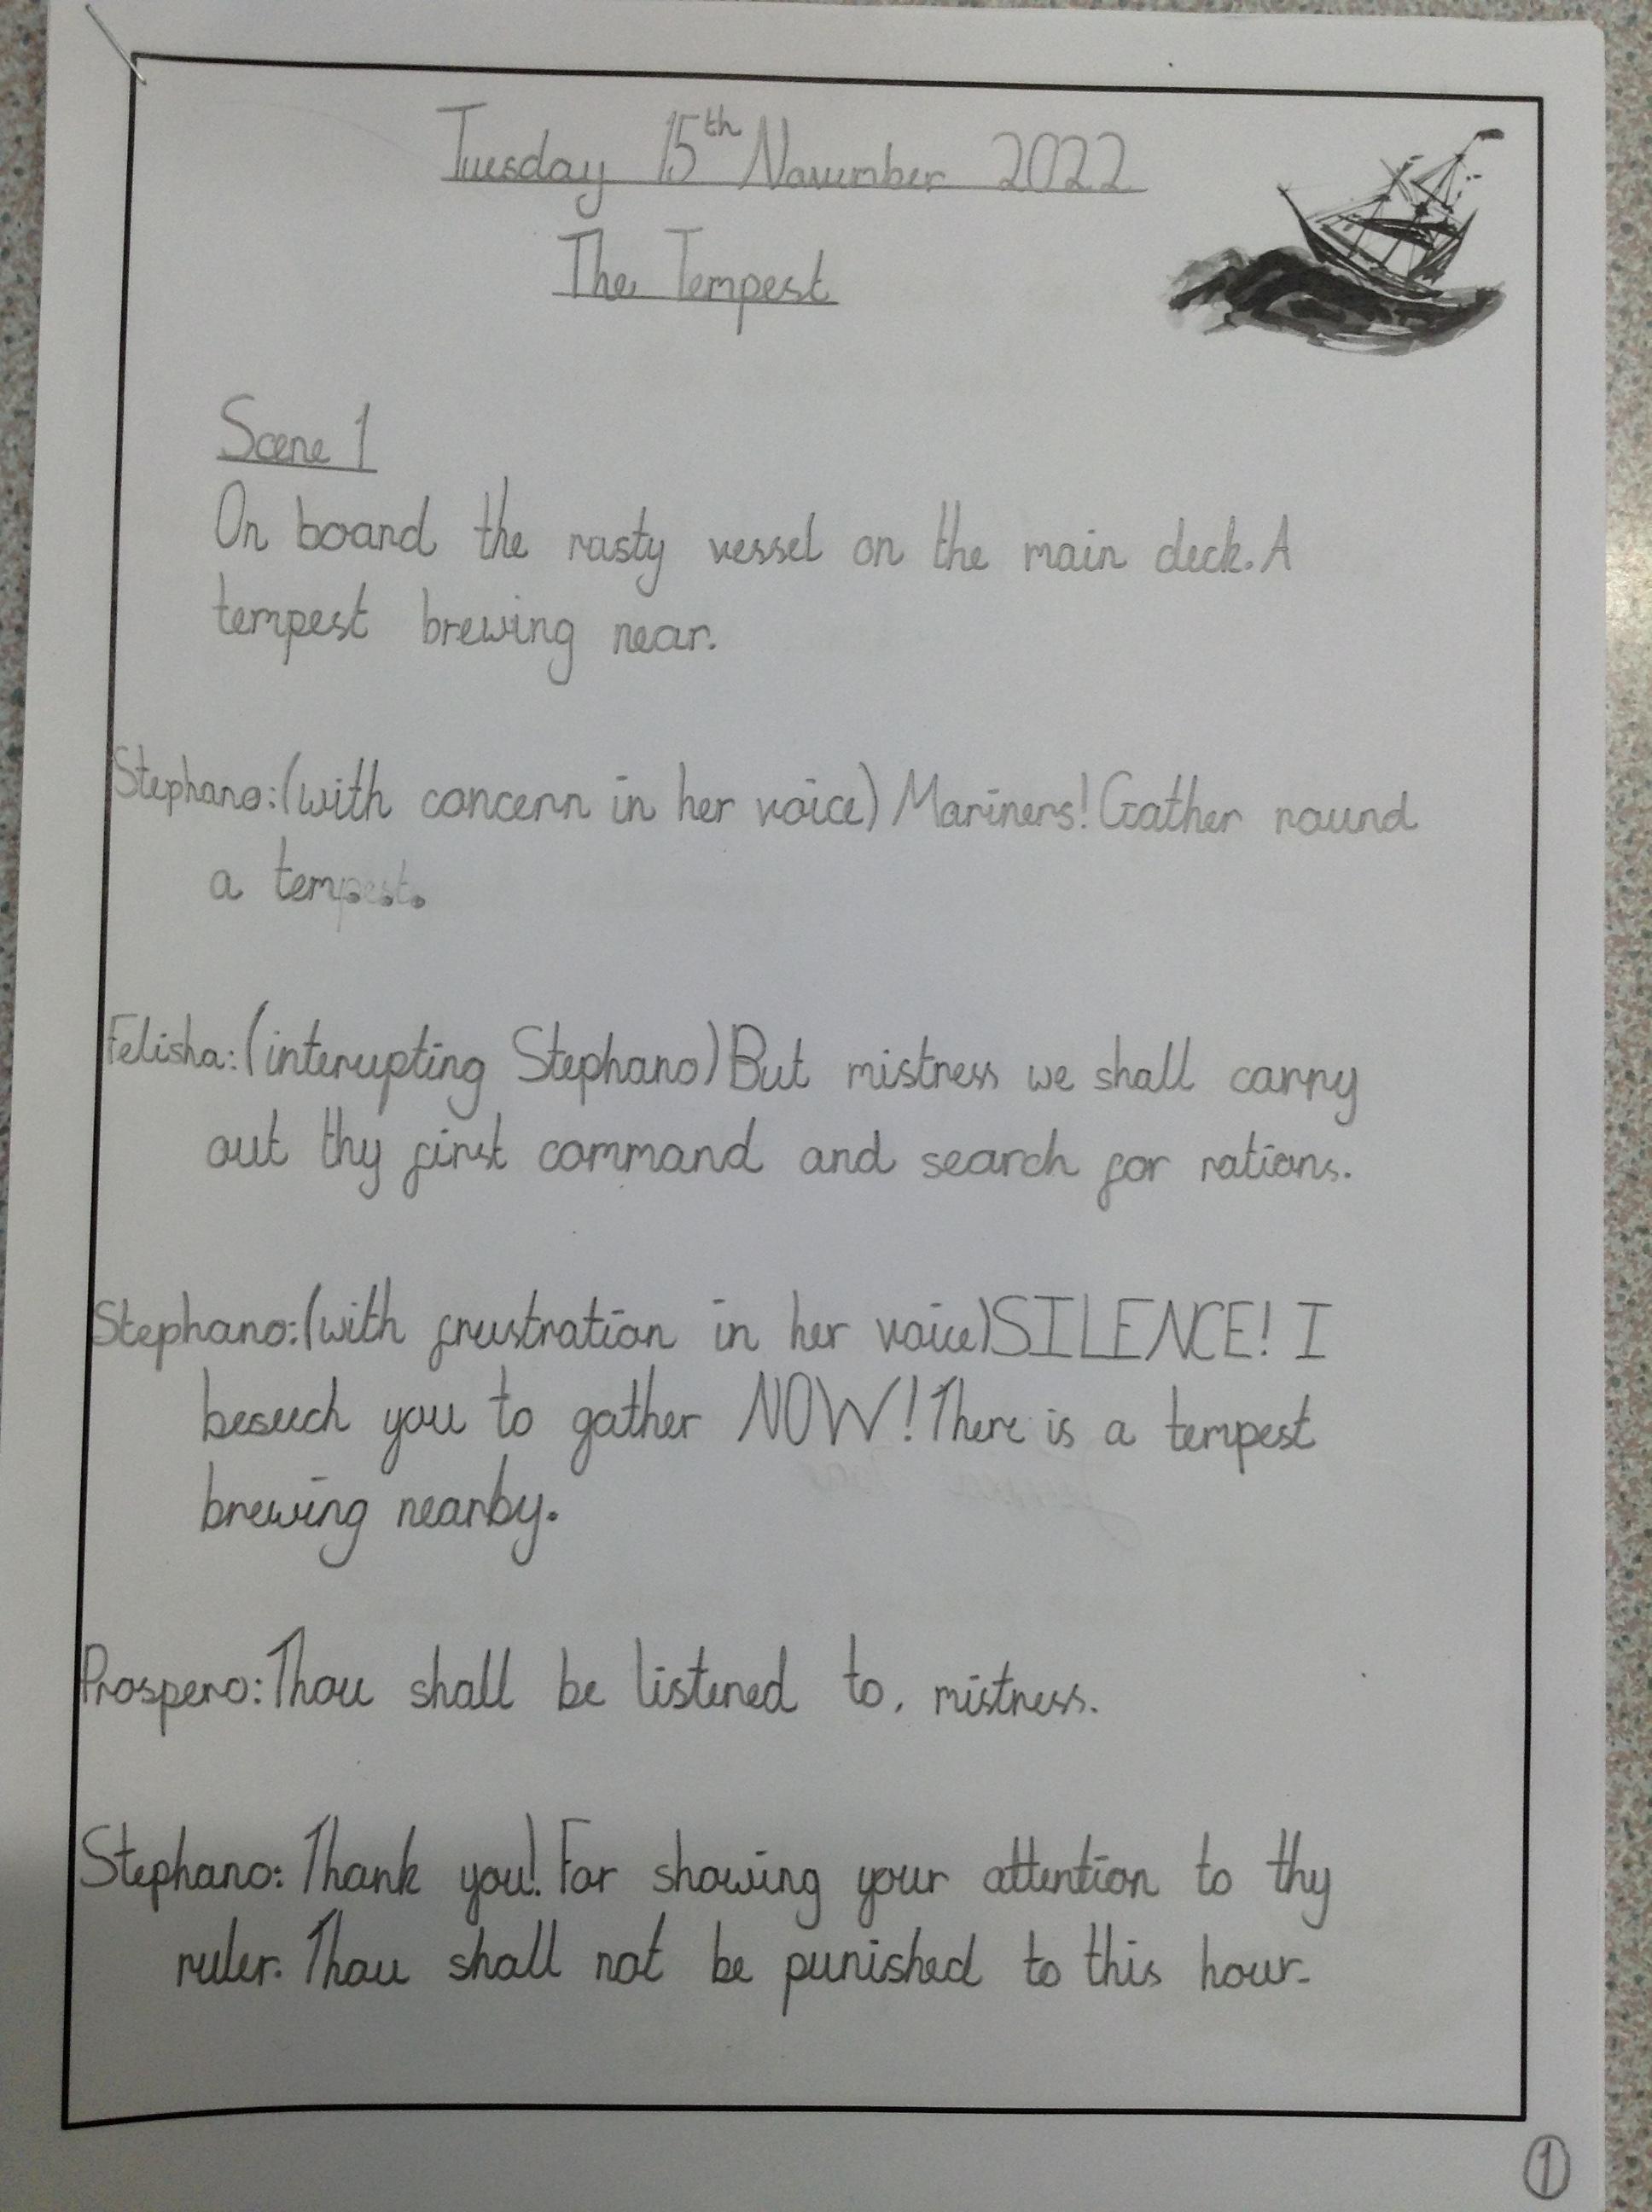 Tuesday 15th November 2022
The Tempest
Scene 1
On board the rasty vessel on the main deck. A
tempest brewing near.
Stephano: (with concern in her voice) Mariners! Gather round
a tempest...
Felisha: (interupting Stephano) But mistress we shall carry
out thy first command and search for rations.
Stephano: (with frustration in her voice) SILENCE! I
beseech you to gather NOW! There is a tempest
brewing nearby.
Prospero: Thou shall be listened to, mistress.
Stephano: Thank you! For showing your attention to thy
ruler. Thou shall not be punished to this hour.
1